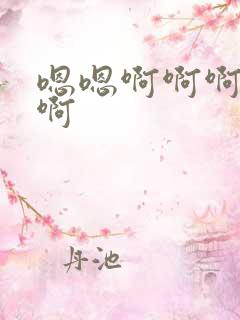 嗯嗯啊啊啊
啊
丹池